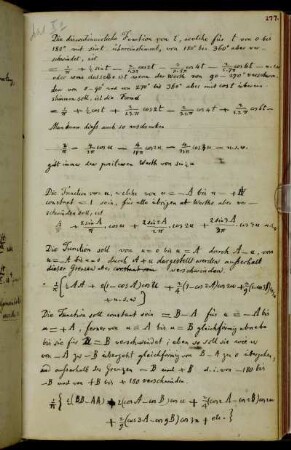 277.
Die discontinuirliche Function von t, welche für t von 0 bis
180° mit sin t übereinstimmt, von 180° bis 360° aber ver-
schwindet, ist
= 1/π + ½ sin t − 2/1.3π cos 2t − 2/3.5π cos 4t − 2/5.7π cos 6t − u.s.w.
oder was dasselbe ist wenn der Werth von 90 − 270° verschwin-
den von 0 − 90 und von 270 bis 360° aber mit cos t überein-
stimmen soll, ist die Form
= 1/π + ½ cos t + 2/1.3π cos 2t − 2/3.5π cos 4t + 2/5.7π cos 6t −
Man kann dies auch so ausdrücken
gibt immer den positiven Werth von sin u
Die Function von u, welche von u = −A bis u = +A
constant = 1 sein, für alle übrigen Werthe aber ver-
schwinden soll, ist
A/π + 2 sin A/π . cos u + 2 sin 2A/2π . cos 2u + 2 sin 3A/3π cos 3u u.s.w.
Die Function soll von u = 0 bis u = A durch A − u, von
u = −A bis u = 0 durch A + u dargestellt werden ausserhalb
dieser Grenzen aber verschwinden.
= 1/π { ½AA + 2(1 − cos A) cos u + 2/4 (1 − cos 2A) cos 2u + 2/9 (1 − cos 3A) cos 3u
+ u.s.w. }
Die Function soll constant sein = B − A für u = −A bis
u = +A, ferner von u = A bis u = B gleichförmig abneh-
men bis sie für u = B verschwindet; eben so soll sie wie u
von −A zu −B übergeht gleichförmig von B − A zu 0 abgehen,
und ausserhalb der Grenzen −B und +B d.i. von −180 bis
−B und von +B bis +180 verschwinden.
1/π { ½(BB − AA) + 2(cos A − cos B) cos u + 2/4 (cos 2A − cos 2B) cos 2u
+ 2/9 (cos 3A − cos 3B) cos 3u + etc. }